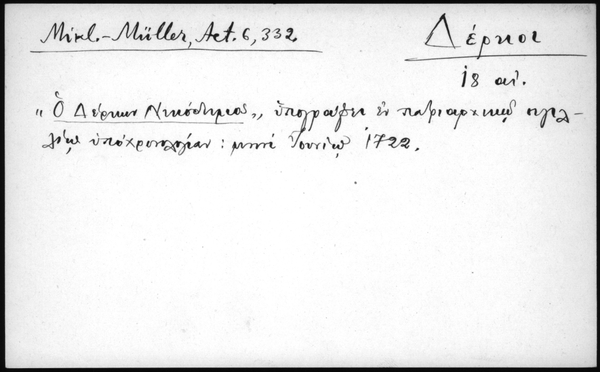 Mikl.-Müller, Act. 6, 332
Δέρκοι
18 αἰ.
"Ὁ Δέρκων Νικόδημος", ὑπογράφει ἐν πατριαρχικῷ σιγιλ-
λίῳ ὑπὸ χρονολογίαν: μηνὶ Ἰουνίῳ 1722.